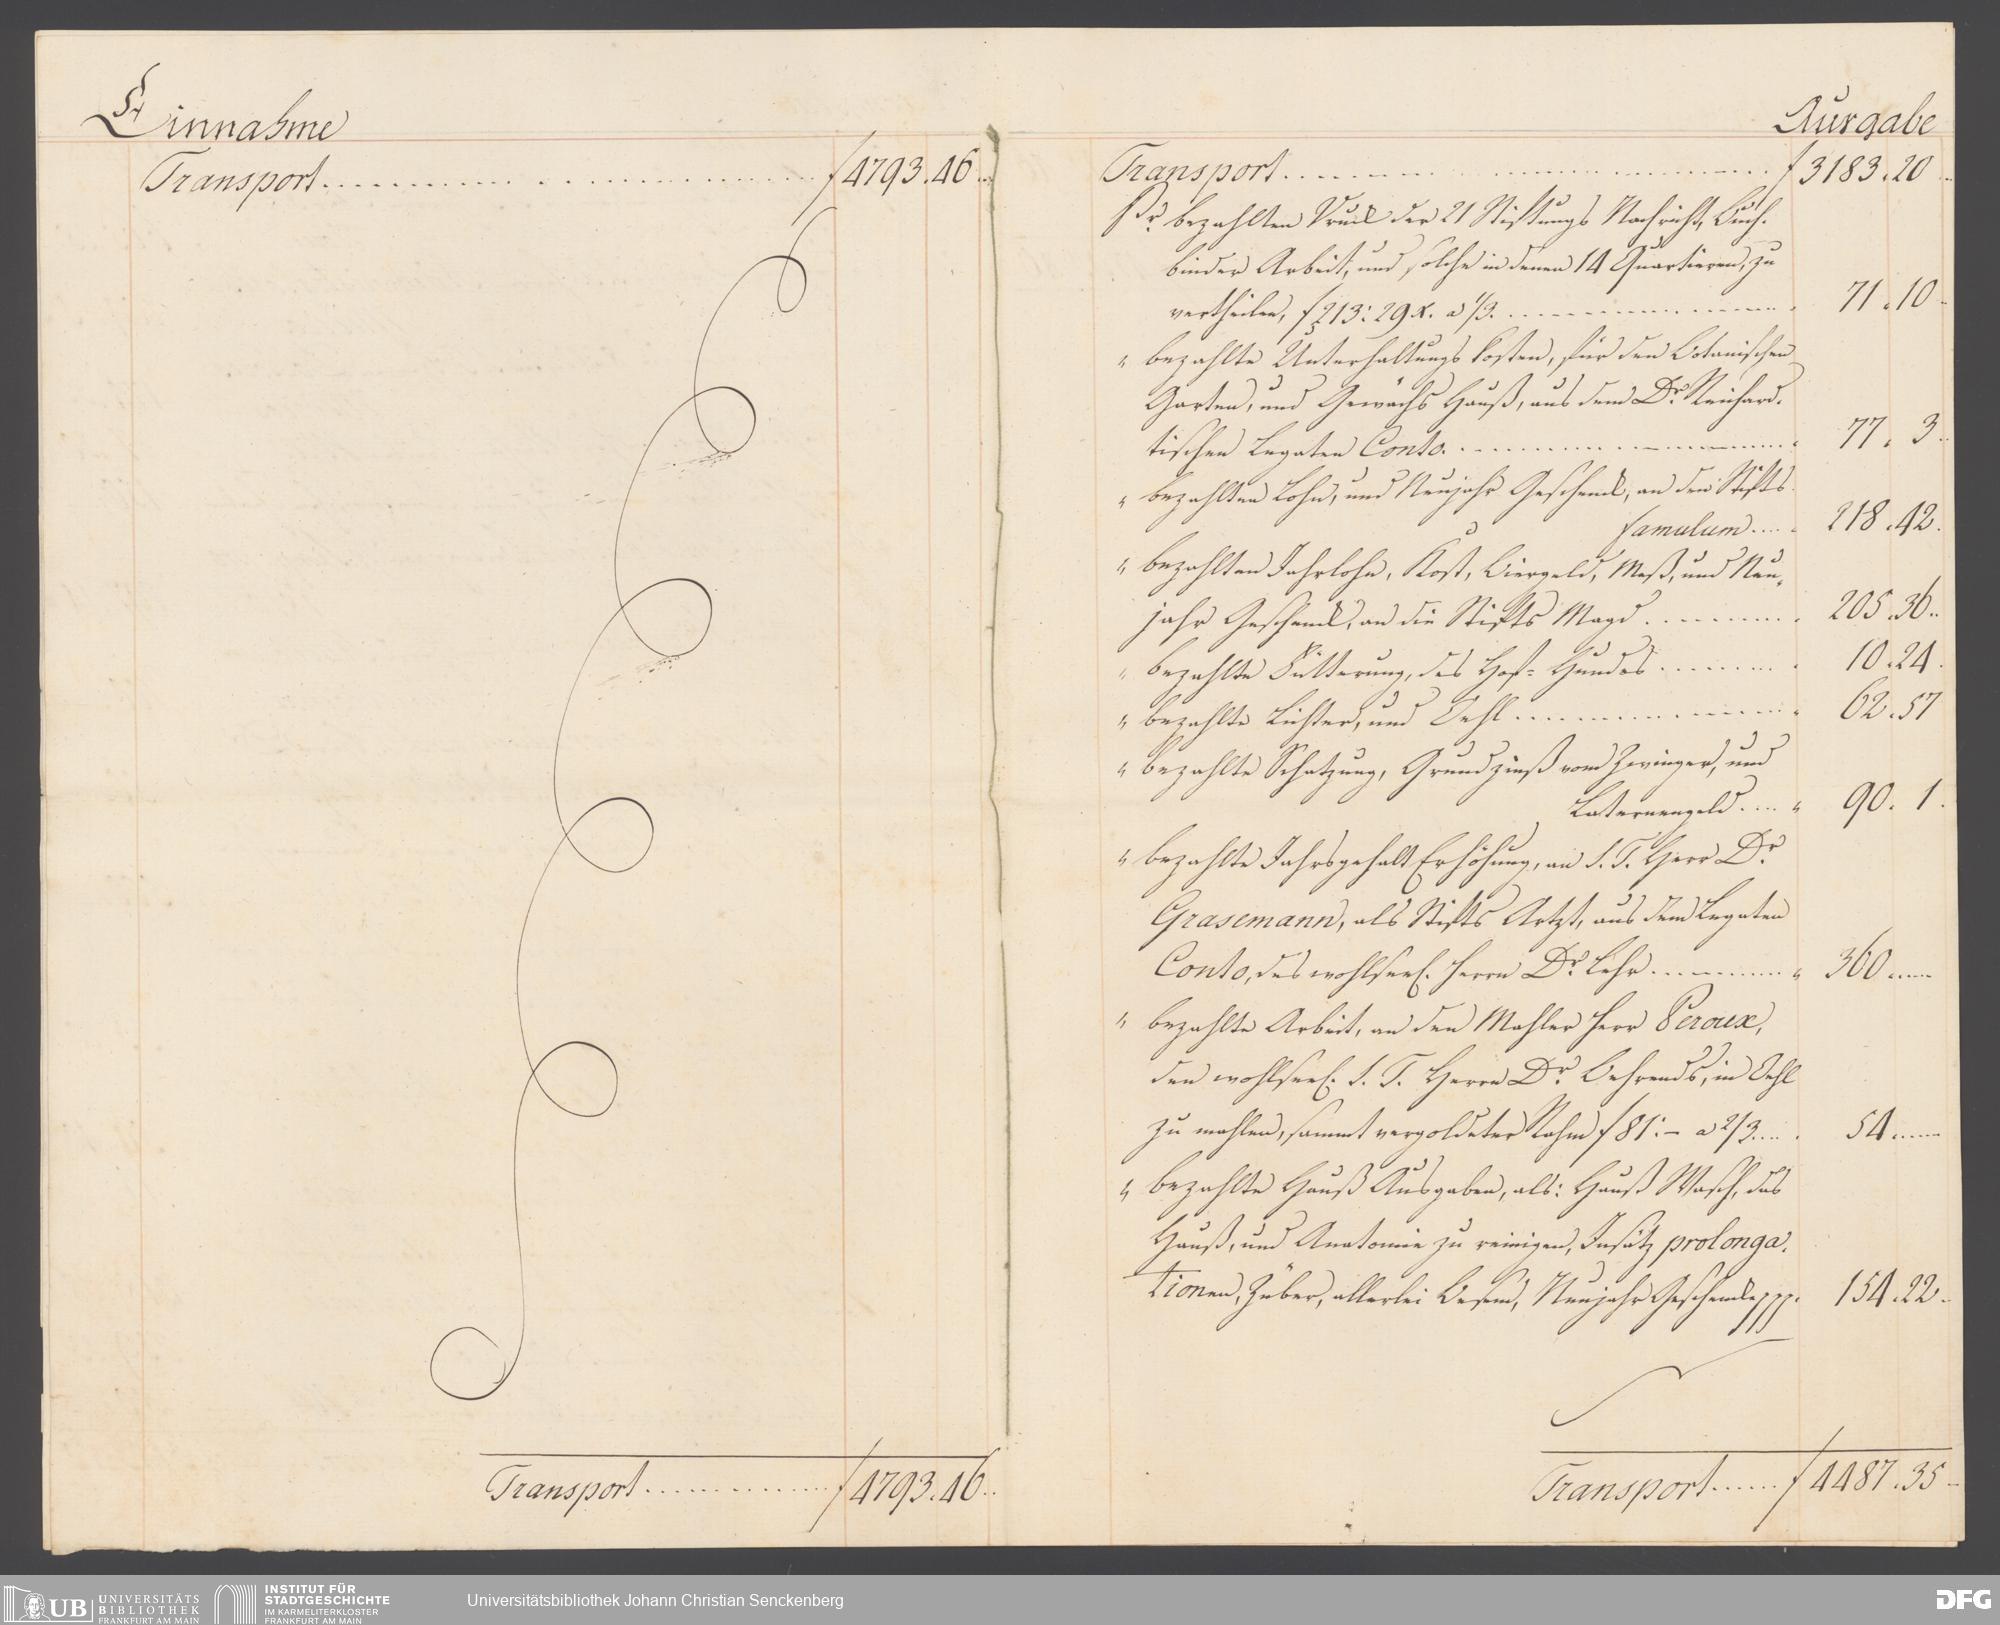 Einnahme
Transport . . . . . . . . . . f 4793.46..
Transport . . . . . . f 4793.46..
Ausgabe
Transport . . . . . . . . . . f 3183.20..
Pr. bezahlten Druck der 21 Stiftungs Nachricht, Buch-
binder Arbeit, und solche in denen 14 Quartieren, zu
vertheilen, f 213: 29 x. a 1/3. . . . . . . . 71.10.
" bezahlte Unterhaltungs Kosten, für den Botanischen
Garten, und Gewächs Hauß, aus dem Dr. Reichard-
tischen Legaten Conto. . . . . . . . . 77. 3.
" bezahlten Lohn, und Neujahr Geschenck, an den Stifts
famulum . . . . 218.42.
" bezahlten Jahrlohn, Kost, Biergeld, Meß, und Neu-
jahr Geschenck, an die Stifts Magd . . . . . . 205.36..
" bezahlte Fütterung, des Hof- Hundes . . . . . . 10.24.
" bezahlte Lichter, und Oehl . . . . . . . . " 62.57
" bezahlte Schatzung, Grundzinß vom Zwinger, und
Laternengeld . . . " 90. 1.
" bezahlte Jahrsgehalt Erhöhung, an S. T. Herr Dr.
Grasemann, als Stifts Artzt, aus dem Legaten
Conto, des wohlseel. Herrn Dr. Lehr . . . . . . " 360.....
" bezahlte Arbeit, an den Mahler Herr Peroux,
den wohlseel. S. T. Herrn Dr. Behrends, in Oehl
zu mahlen, sammt vergoldeter Rahm f 81:— a 2/3.... 54.....
" bezahlte Hauß Ausgaben, als: Hauß Wasch, das
Hauß, und Anatomie zu reinigen, Insätz prolonga-
tionen, Züber, allerlei Besem, Neujahr Geschencke ppp. 154.22.
Transport . . . . . f 4487.35..
UB UNIVERSITÄTS
BIBLIOTHEK
FRANKFURT AM MAIN
INSTITUT FÜR
STADTGESCHICHTE
IM KARMELITERKLOSTER
FRANKFURT AM MAIN
Universitätsbibliothek Johann Christian Senckenberg
DFG